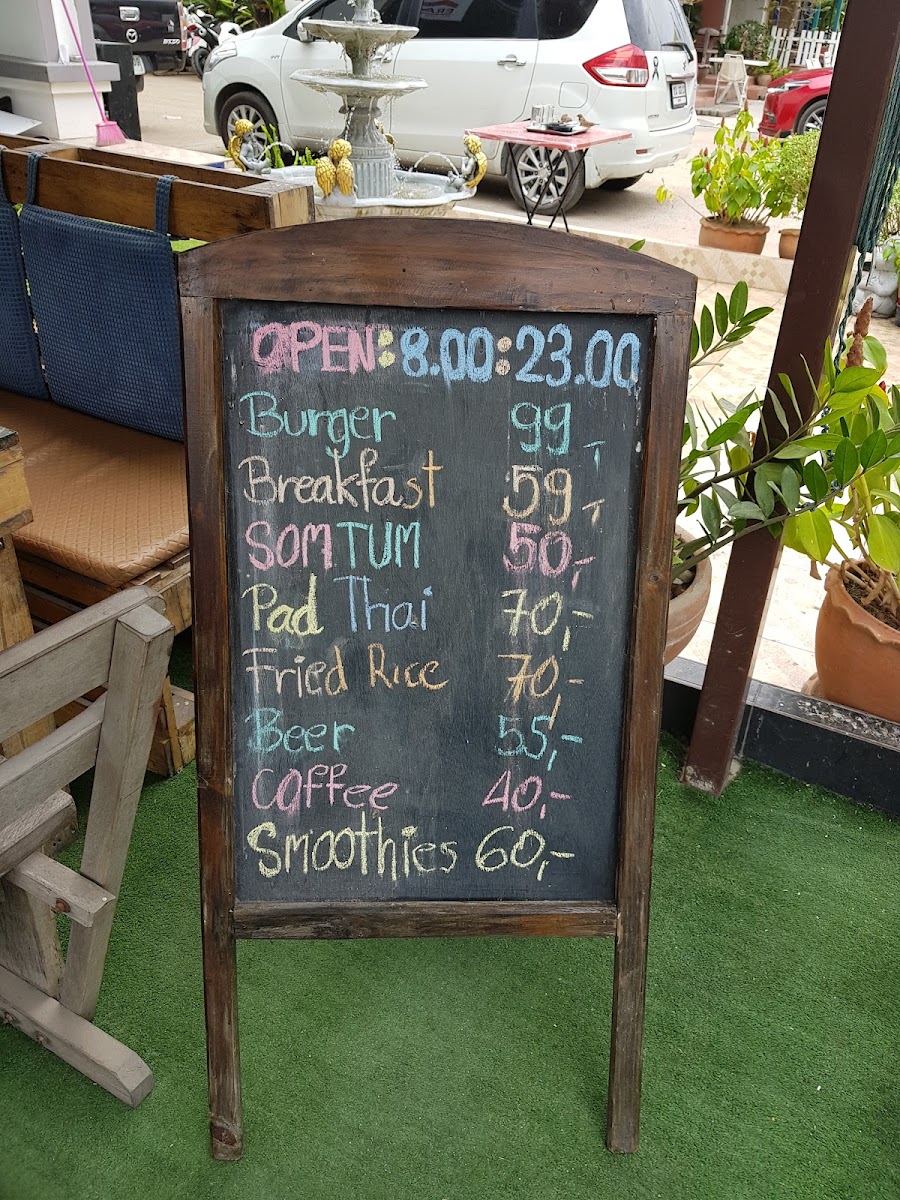 OPEN: 8.00:23.00
Burger 99,-
Breakfast 59,-
SOM TUM 50,-
Pad Thai 70,-
Fried Rice 70,-
Beer 55,-
Coffee 40,-
Smoothies 60,-